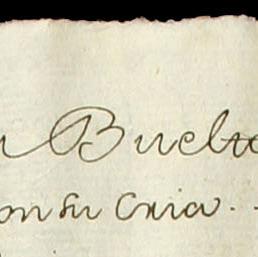 Buelta
on su Cria.